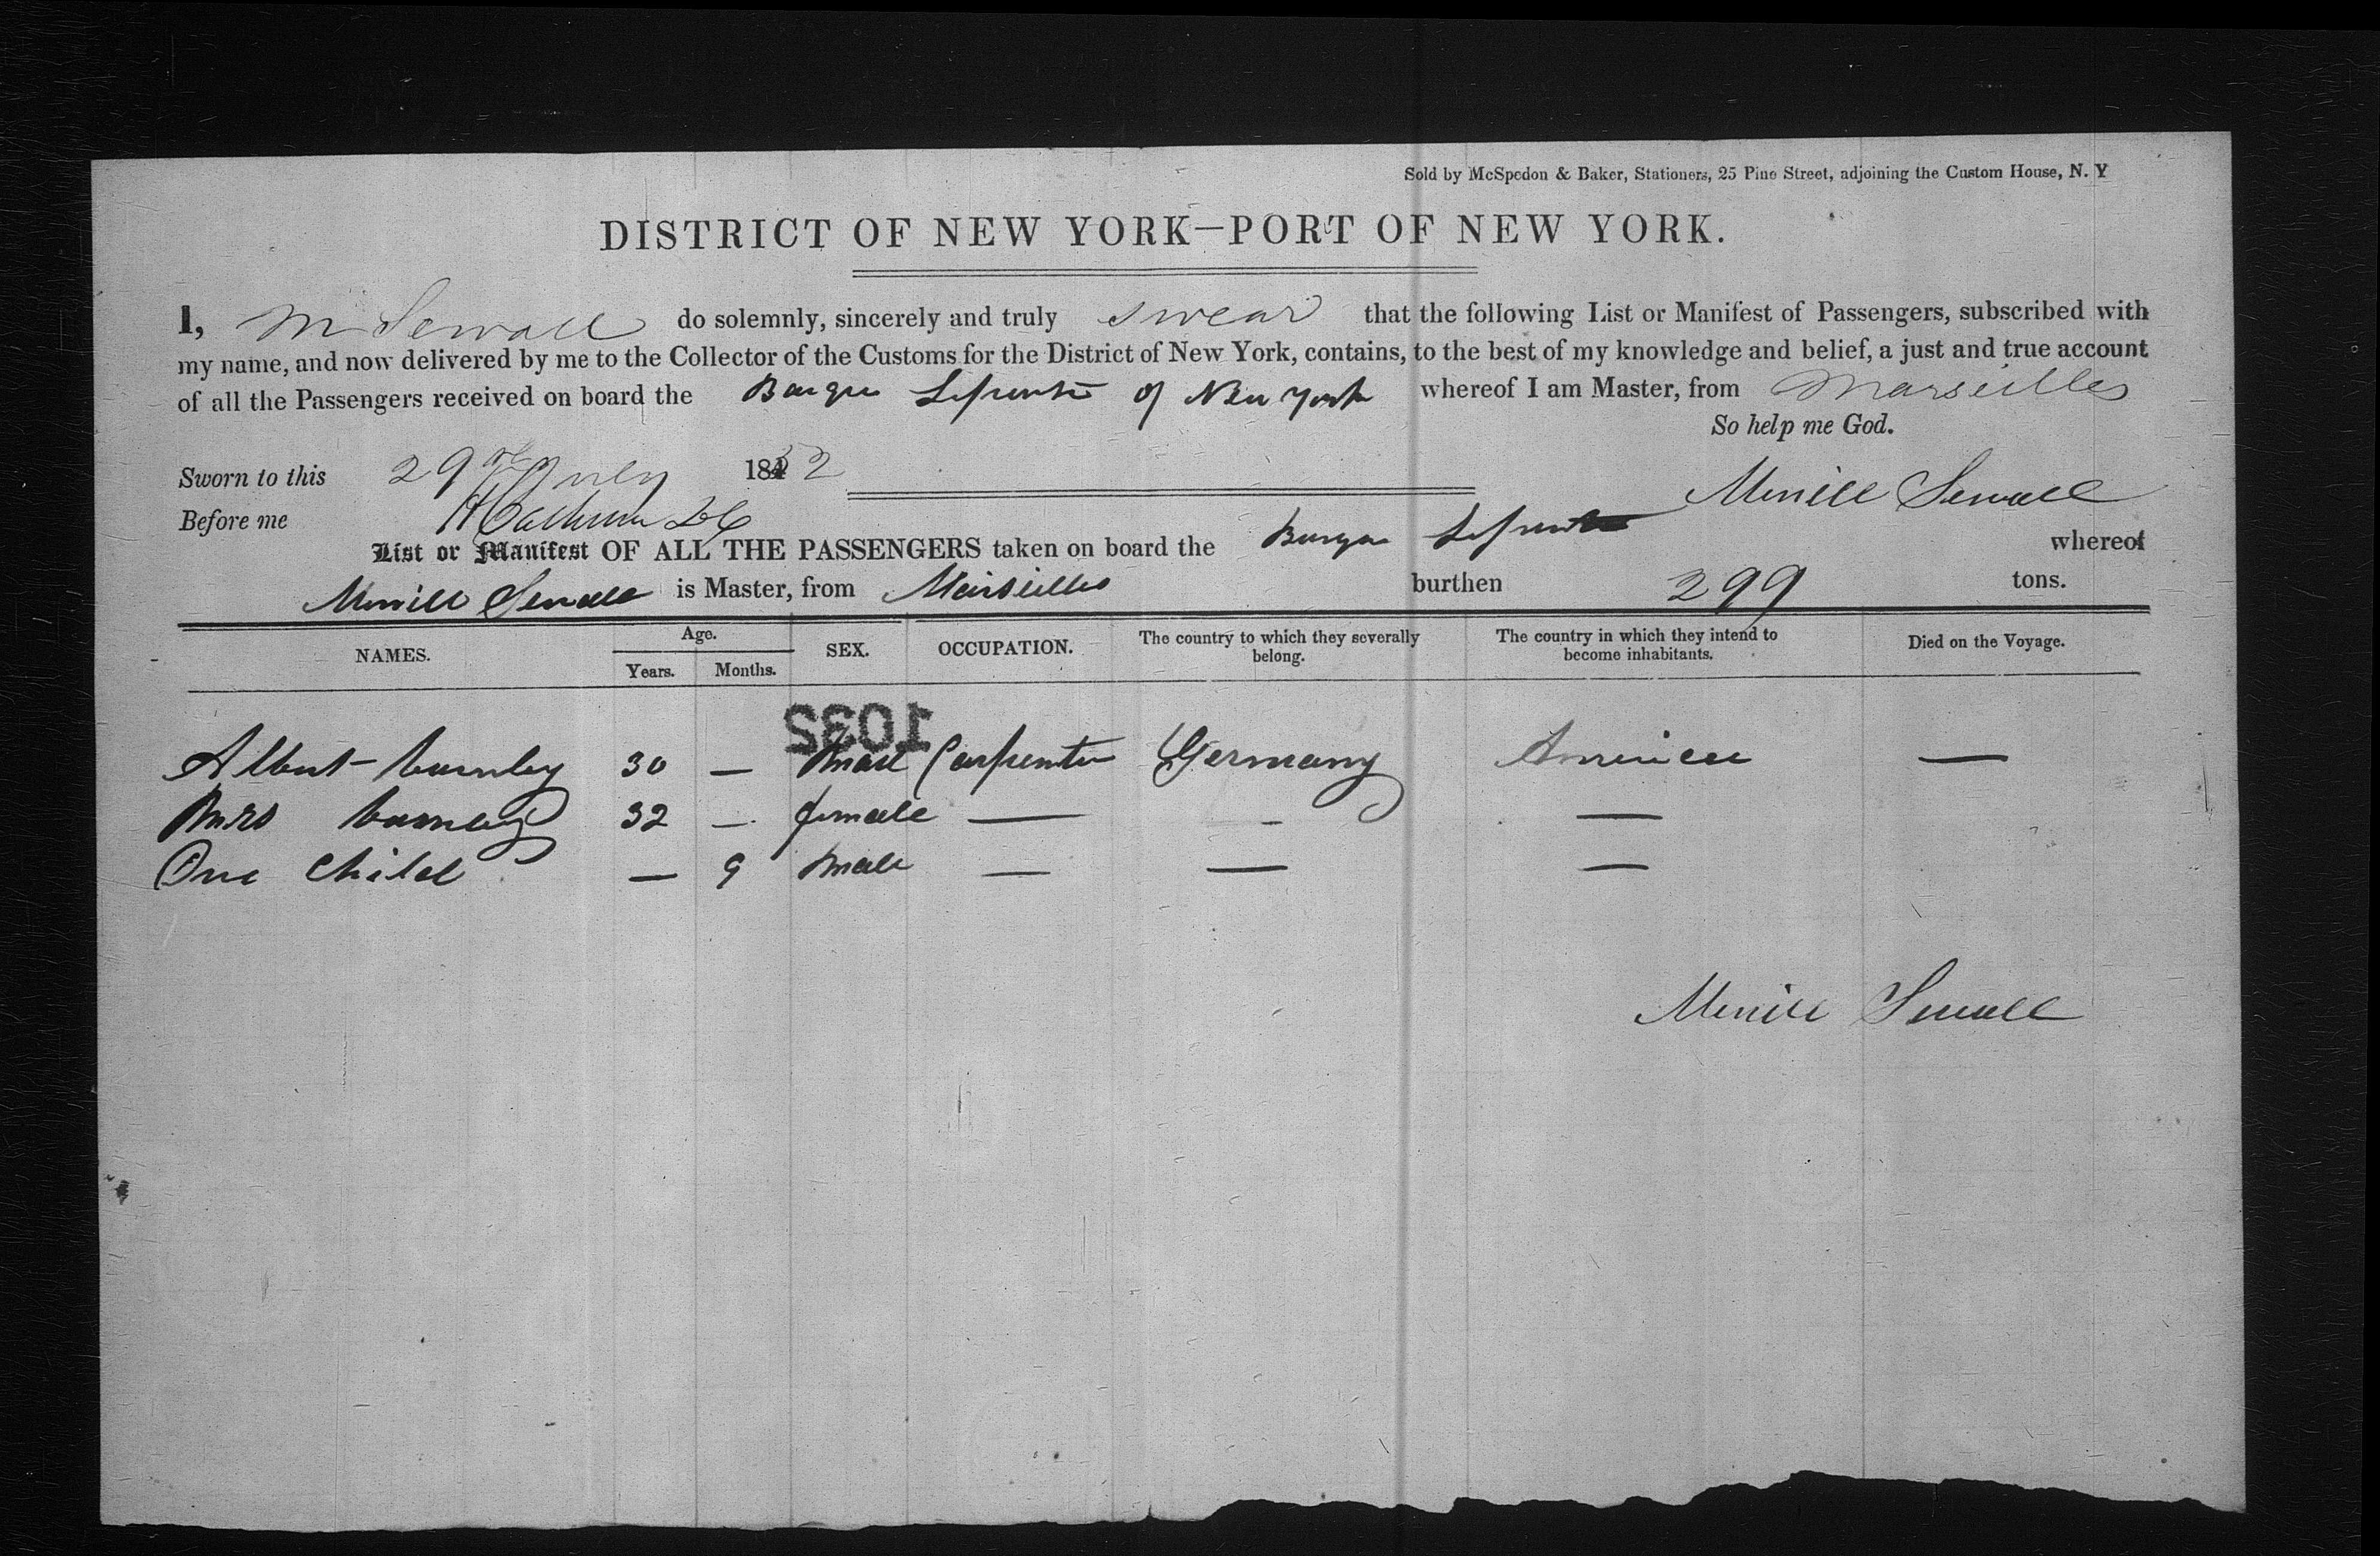 Sold by McSpedon & Baker, Stationers, 25 Pine Street, adjoining the Custom House, N. Y
DISTRICT OF NEW YORK—PORT OF NEW YORK.
I, M Sewall do solemnly, sincerely and truly swear that the following List or Manifest of Passengers, subscribed with
my name, and now delivered by me to the Collector of the Customs for the District of New York, contains, to the best of my knowledge and belief, a just and true account
of all the Passengers received on board the Barque of New York whereof I am Master, from Marseilles
So help me God.
Sworn to this 29th July 1852
Merrill Sewall
Before me
List or Manifest OF ALL THE PASSENGERS taken on board the Barque whereof
Merrill Sewall is Master, from Marseilles burthen 299 tons.
NAMES. Age. Years. Months. SEX. OCCUPATION. The country to which they severally belong. The country in which they intend to become inhabitants. Died on the Voyage.
1032
Albert 30 — Male Carpenter Germany America —
Mrs 32 — female — — —
One Child — 9 Male — — —
Merrill Sewall